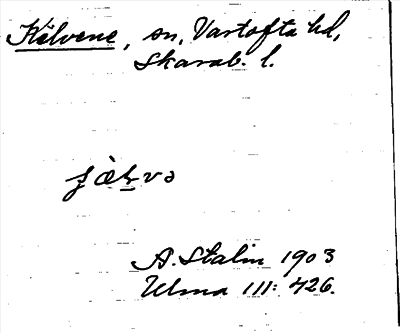 Kälvene, sn, Vartofta hd,
Skarab. l.
A. Stalin 1903
Ulma 111: 426.